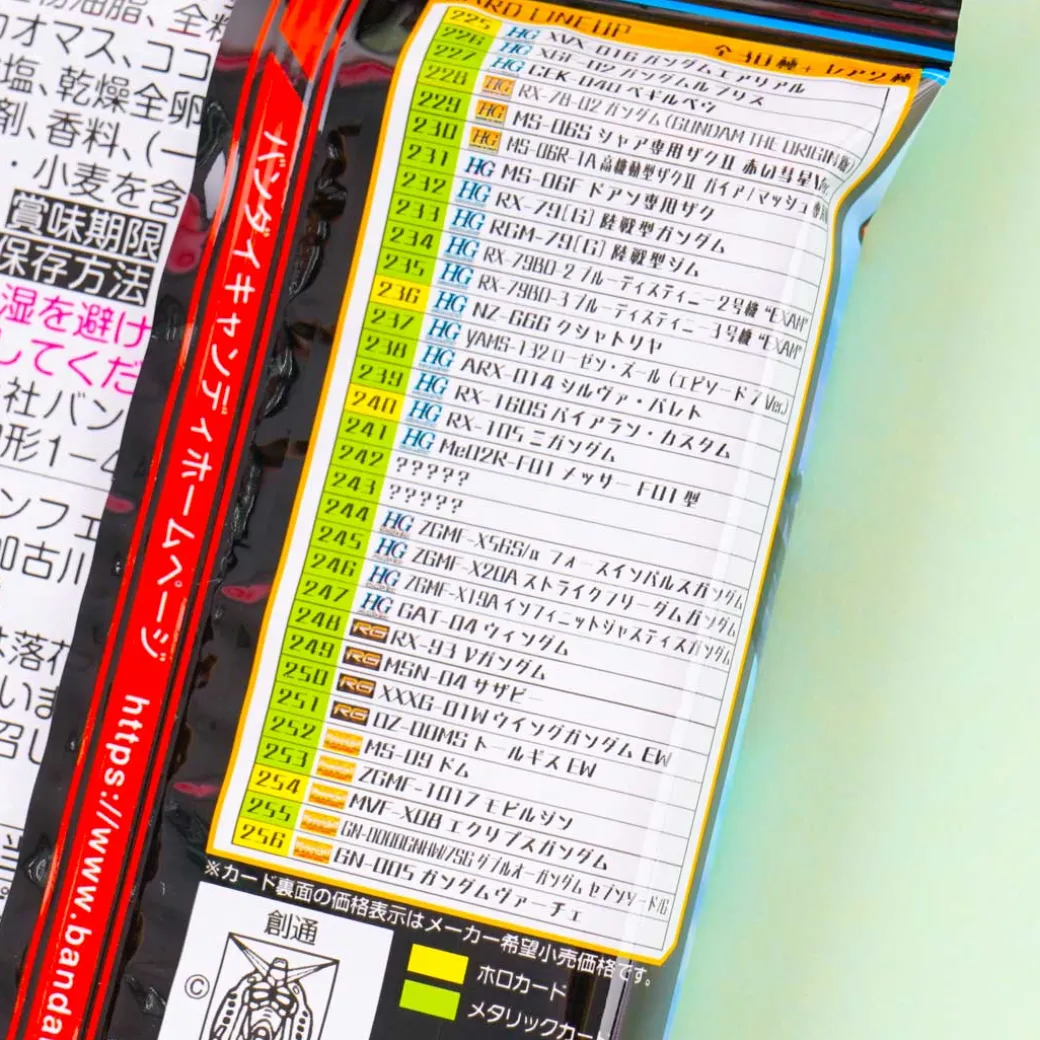 物油脂、全粉
カオマス、ココ
塩、乾燥全卵
剤、香料、(一
・小麦を含
賞味期限
保存方法
湿を避け
してくだ
社バン
形1-4
ンフェ
加古川
は落花
いま
召し
バンダイキャンディホームページ https://www.banda
CARD LINEUP 全30種+レア2種
225 HG XVX-016 ガンダムエアリアル
226 HG XGF-02 ガンダムルブリス
227 HG CEK-040 ベギルペンデ
228 HG RX-78-02 ガンダム(GUNDAM THE ORIGIN版)
229 HG MS-06S シャア専用ザクII 赤い彗星Ver.
230 HG MS-06R-1A 高機動型ザクII ガイア/マッシュ専用機
231 HG MS-06F ドアン専用ザク
232 HG RX-79[G] 陸戦型ガンダム
233 HG RGM-79[G] 陸戦型ジム
234 HG RX-79BD-2 ブルーディスティニー2号機 “EXAM”
235 HG RX-79BD-3 ブルーディスティニー3号機 “EXAM”
236 HG NZ-666 クシャトリヤ
237 HG YAMS-132 ローゼン・ズール (エピソード7 Ver.)
238 HG ARX-014 シルヴァ・バレト
239 HG RX-160S バイアラン・カスタム
240 HG RX-105 Ξガンダム
241 HG Me02R-F01 メッサーF01型
242 ?????
243 ?????
244 HG ZGMF-X56S/α フォースインパルスガンダム
245 HG ZGMF-X20A ストライクフリーダムガンダム
246 HG ZGMF-X19A インフィニットジャスティスガンダム
247 HG GAT-04 ウィンダム
248 RG RX-93 νガンダム
249 RG MSN-04 サザビー
250 RG XXXG-01W ウイングガンダム EW
251 RG OZ-00MS トールギス EW
252 MS-09 ドム
253 ZGMF-1017 モビルジン
254 MVF-X08 エクリプスガンダム
255 GN-0000GNHW/7SG ダブルオーガンダム セブンソード/G
256 GN-005 ガンダムヴァーチェ
※カード裏面の価格表示はメーカー希望小売価格です。
創通
©
ホロカード
メタリックカー